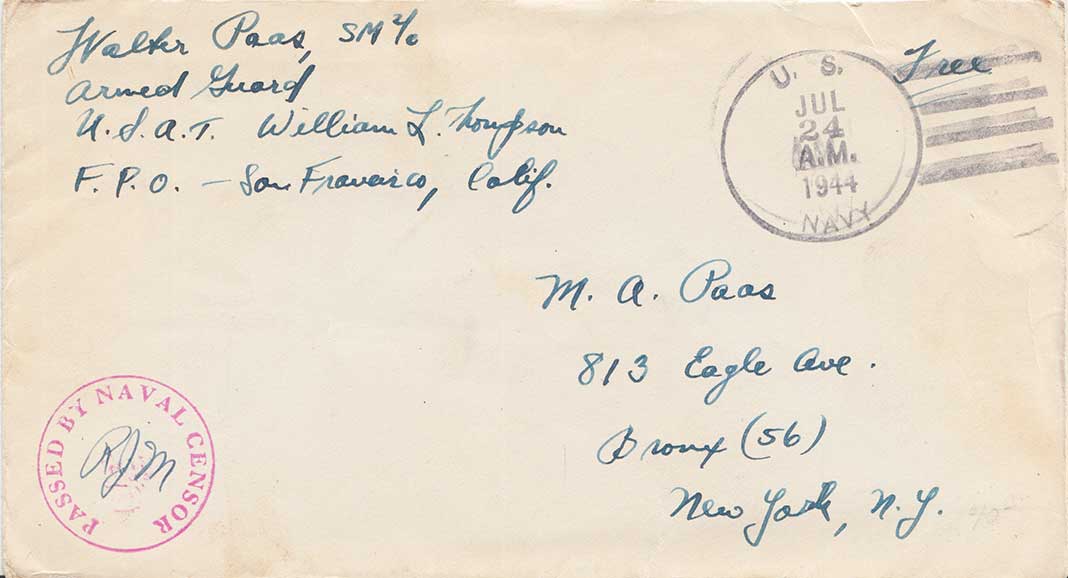 Walter Paas, SM 2/c
Armed Guard
U.S.A.T. William L. Thompson
F.P.O. – San Francisco, Calif.
Free
U. S.
JUL
24
A.M.
1944
NAVY
M. A. Paas
813 Eagle Ave.
Bronx (56)
New York, N.Y.
PASSED BY NAVAL CENSOR
RJM